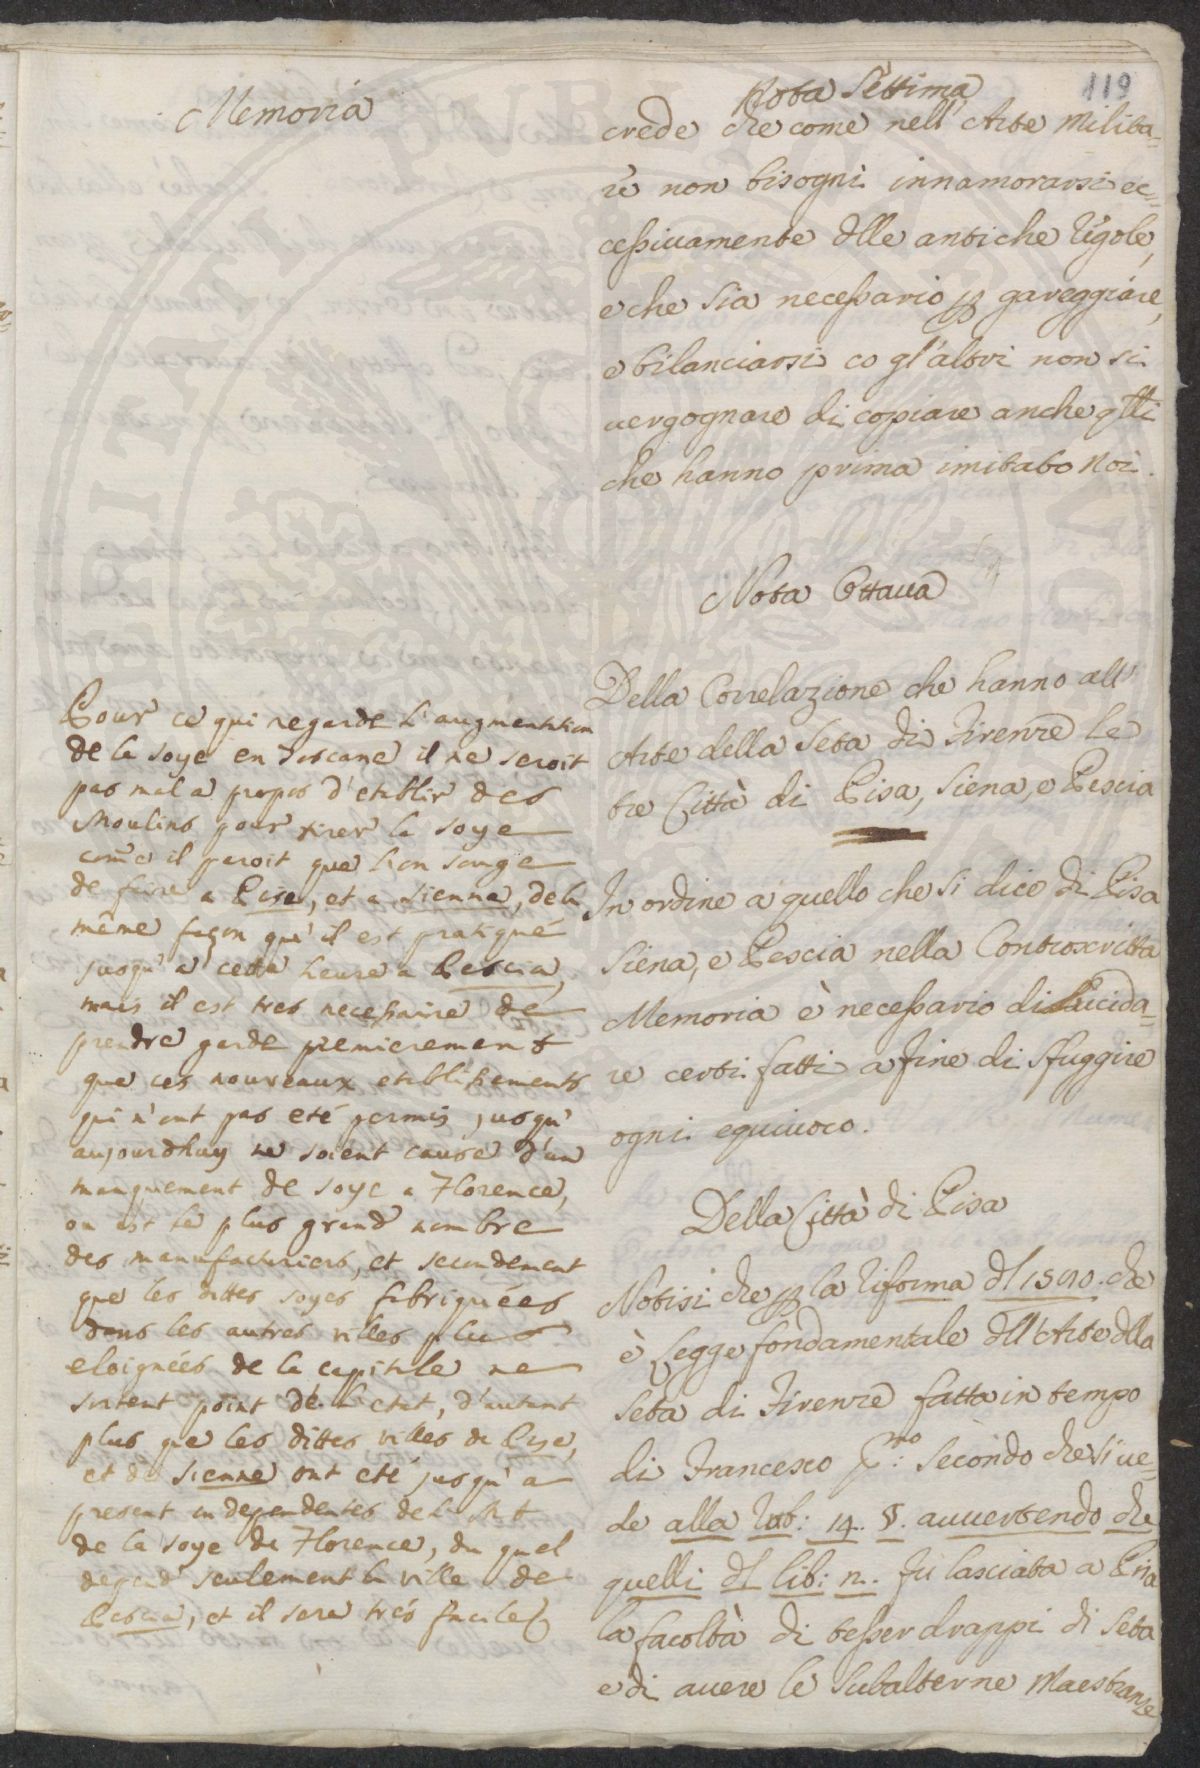 119
Memoria
Pour ce qui regarde l'augmentation
de la soye en Toscane il ne seroit
pas mal a propos d'etablir des
Moulins pour tirer la soye
com̄e il paroit que l'on songe
de faire a Pise, et a Sienne, de la
même façon qu'il est pratiqué
jusqu'a cette heure a Pescia,
mais il est tres necessaire de
prendre garde premierement
que ces nouveaux etablissements
qui n'ont pas eté permis jusqu'
aujourdhuy ne soient cause d'un
manquement de soye a Florence,
ou est le plus grand nombre
des manufacturiers, et secondement
que les dittes soyes fabriquées
dans les autres villes plus
eloignées de la capitale ne
sortent point de l'etat, d'autant
plus que les dittes villes de Pise,
et de Sienne ont eté jusqu'a
present independentes de l'Art
de la soye de Florence, du quel
depend seulement la ville de
Pescia, et il sera trés facile
Nota Settima
crede che come nell'Arte Milita=
re non bisogni innamorarsi ec=
cessivamente dlle antiche regole,
e che sia necessario p gareggiare,
e bilanciarsi co gl'altri non si
vergognare di copiare anche qlli
che hanno prima imitato Noi.
Nota Ottava
Della Correlazione che hanno all'
Arte della Seta di Firenze le
tre Città di Pisa, Siena, e Pescia
In ordine a quello che si dice di Pisa
Siena, e Pescia nella Controscritta
Memoria è necessario dilucida=
re certi fatti a fine di sfuggire
ogni equivoco.
Della Città di Pisa
Notisi che p la riforma dl 1580. che
è Legge fondamentale dll'Arte dlla
Seta di Firenze fatta in tempo
di Francesco Pmo: Secondo che si ve=
de alla Rub: 14. §. avvertendo che
quelli dl lib: n. fù lasciata a Pisa
la facoltà di tesser drappi di Seta
e di avere le subalterne Maestranze